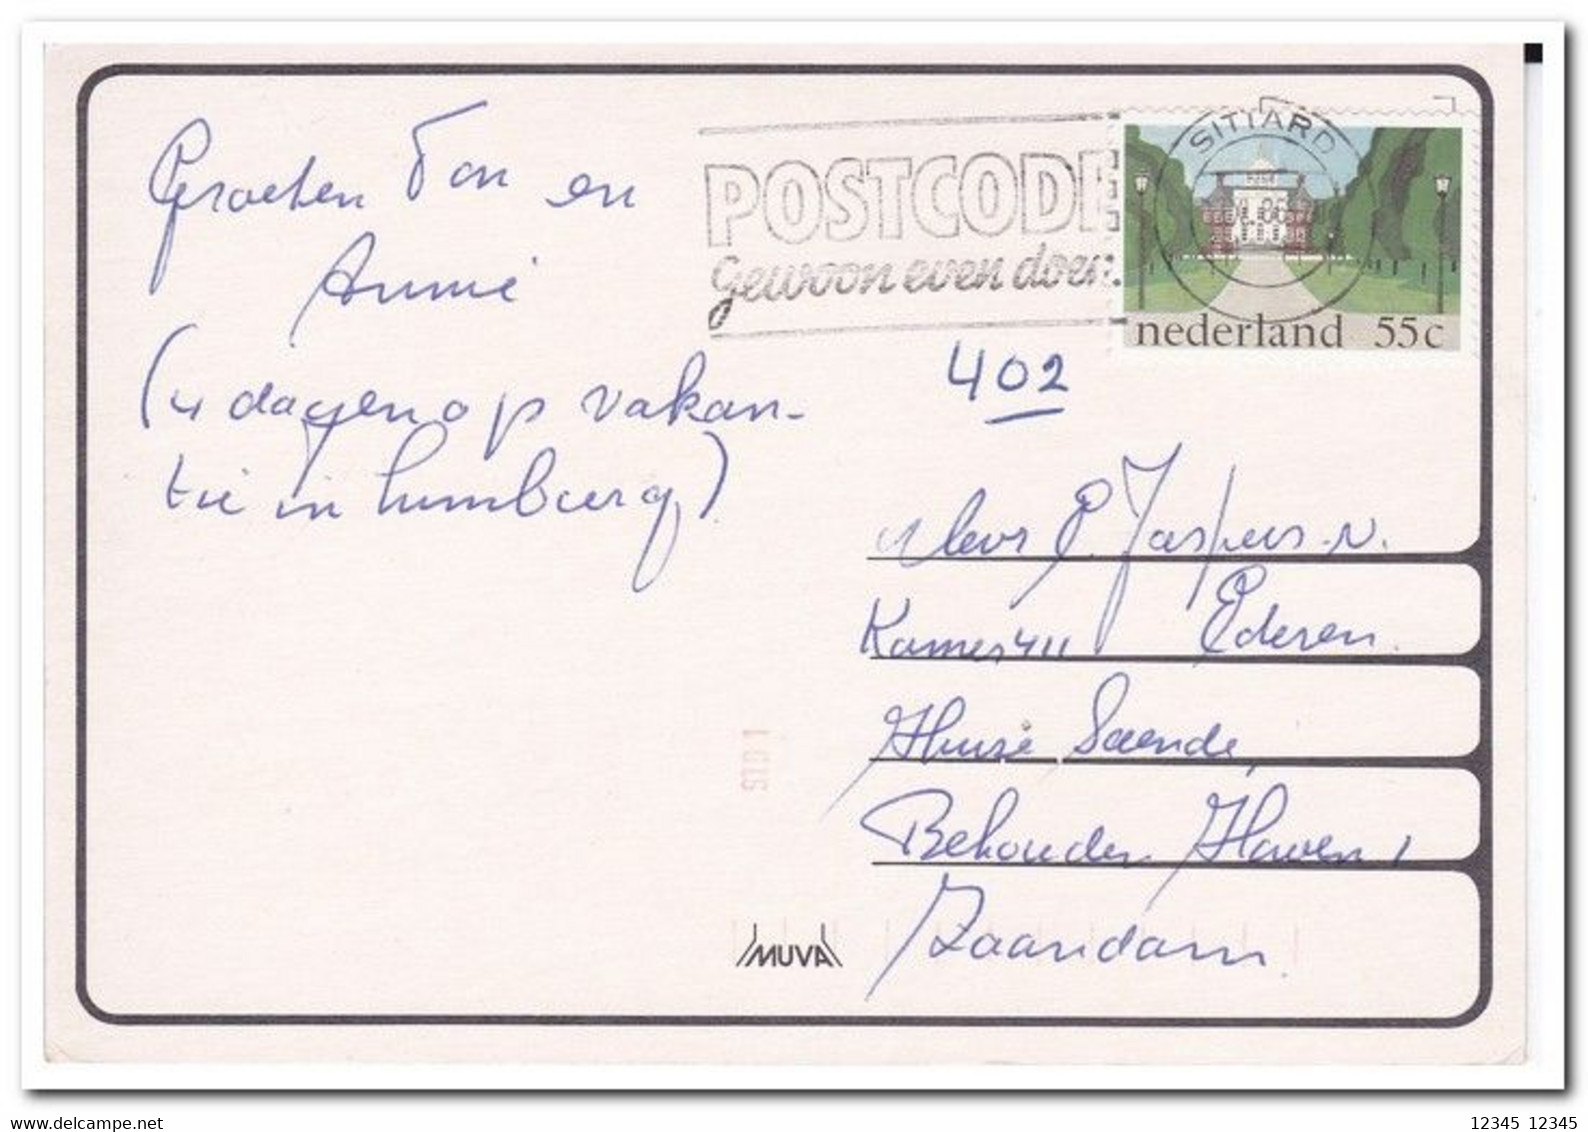 Groeten Ton en
Annie
(4 dagen op vakan-
tie in Limburg)
POSTCODE
gewoon even doen.
SITTARD
nederland 55c
402
Mevr P. Jaspers-v.
Kamer 411 Ederen.
Huize Saende,
Behouden Haven 1
Zaandam.
STD 1
MUVA
www.delcampe.net
12345 12345